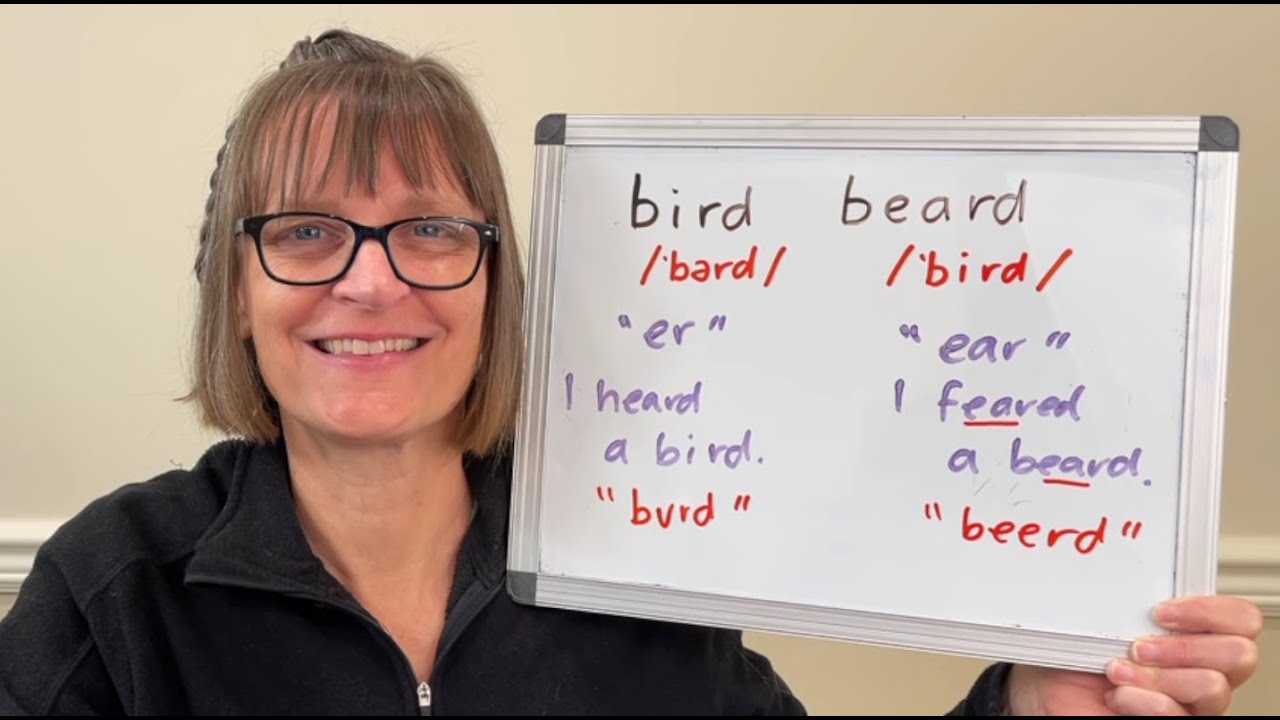 bird beard
/ˈbərd/ /ˈbird/
"er" "ear"
I heard I feared
a bird. a beard.
"burd" "beerd"